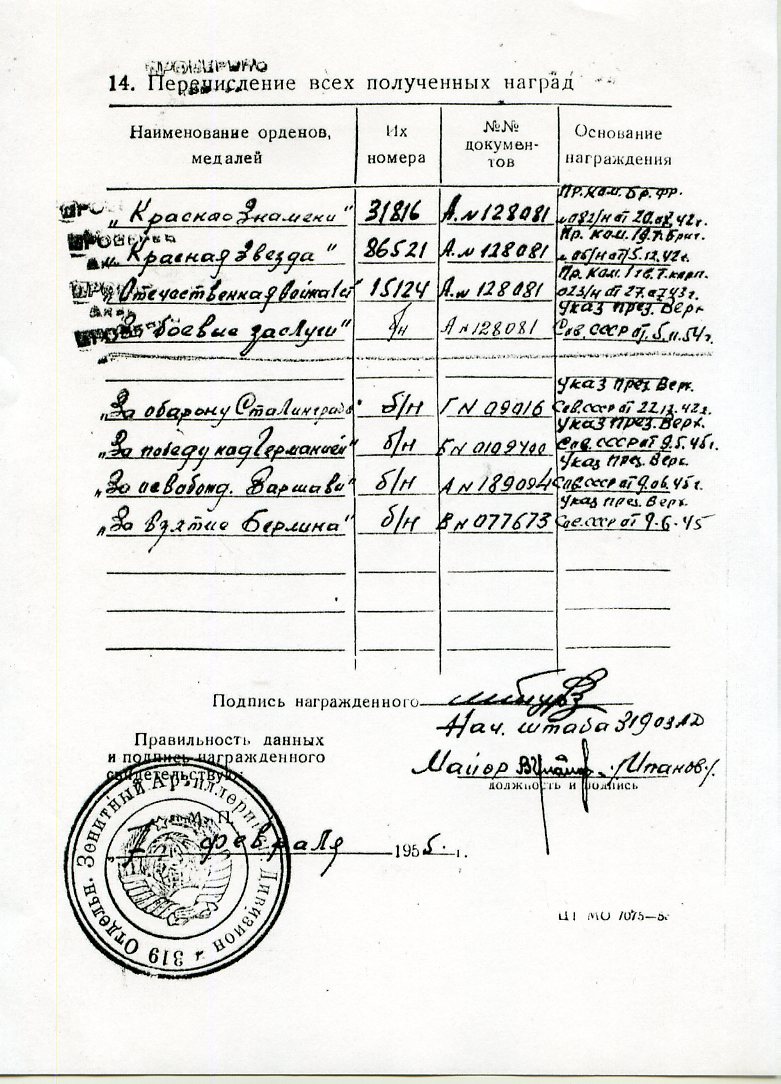 ПРОВЕРЕНО
14. Перечисление всех полученных наград
Наименование орденов, медалей
Их номера
№№ документов
Основание награждения
„Красного Знамени" 31816 А.№128081 Пр. ком. Бр. фр. №082/н от 20.08.42г.
„Красная Звезда" 86521 А.№128081 Пр. ком. 19.Т.Бриг. №06/н от 15.12.42г.
„Отечественная война I ст" 15124 А.№128081 Пр. ком. 1 гв. Т. корп. 023/н от 27.07.43г.
„За боевые заслуги" б/н А№128081 Указ през. Верх. Сов. СССР от 5.11.54г.
„За оборону Сталинграда" б/н Г№09016 Указ през. Верх. Сов. СССР от 22.12.42г.
„За победу над Германией" б/н Б№0109400 Указ През. Верх. Сов. СССР от 9.5.45г.
„За освобожд. Варшавы" б/н А№189094 Указ През. Верх. Сов. СССР от 9.06.45г.
„За взятие Берлина" б/н В№077673 Указ През. Верх. Сов. СССР от 9.6.45
Подпись награжденного
Нач. штаба 319 ОЗАД
Правильность данных
и подпись награжденного
свидетельствую:
Майор /Ипанов/
должность и подпись
М. П.
7 февраля 1955. г.
319 Отдельн. Зенитный Артиллерийск. Дивизион
ЦТ МО 7075—5